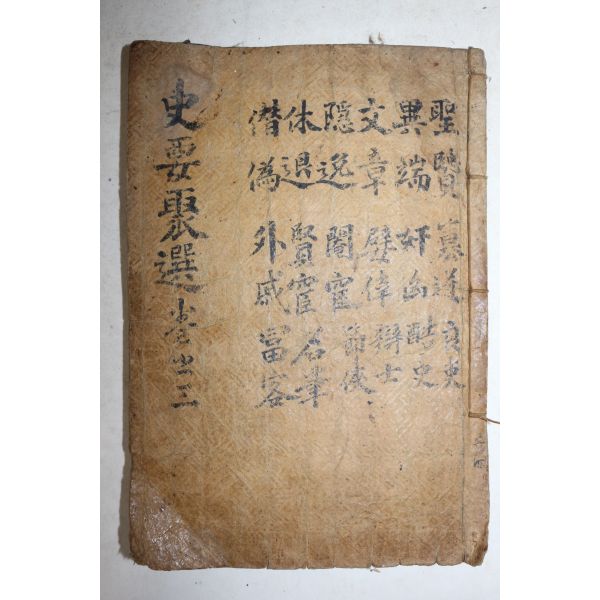 聖賢 篡逆 良吏
異端 奸凶 酷吏
文章 嬖倖 辯士
隱逸 閹宦 節俠
休退 賢宦 名筆
僭偽 外戚 富客
史要聚選 卷之三